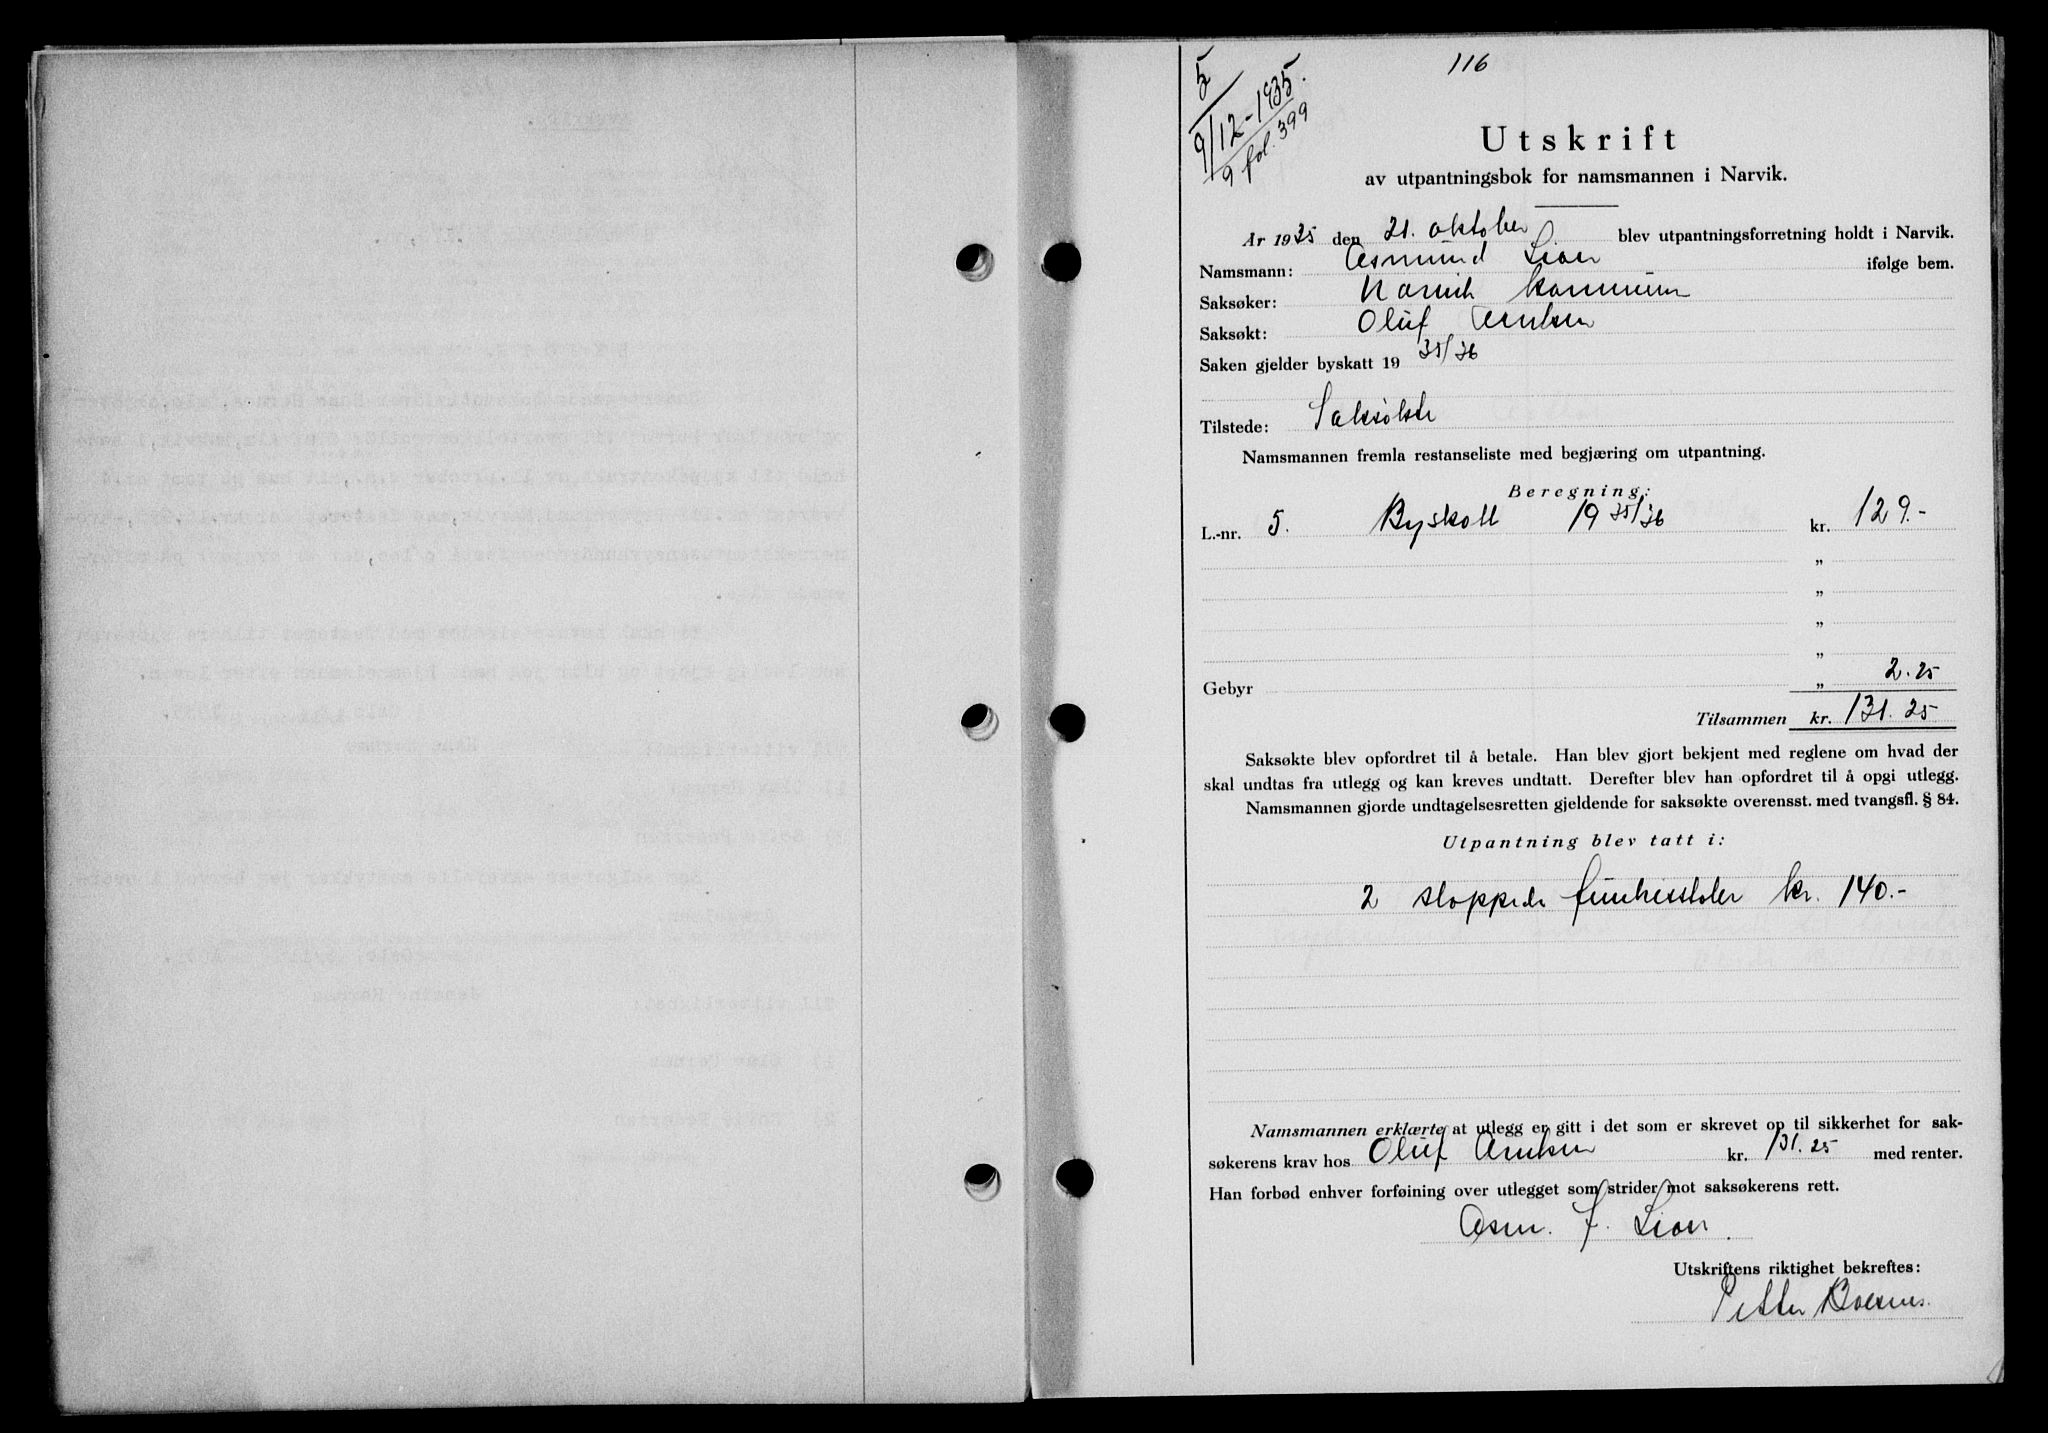 116
5
9/12-1935.
9 fol. 399
Utskrift
av utpantningsbok for namsmannen i Narvik.
År 1935 den 21. oktober blev utpantningsforretning holdt i Narvik.
Namsmann: Asmund Lian ifølge bem.
Saksøker: Narvik kommune
Saksøkt: Oluf
Saken gjelder byskatt 1935/36
Tilstede: Saksøkte
Namsmannen fremla restanseliste med begjæring om utpantning.
Beregning:
L.-nr. 5. Byskatt 1935/36 kr. 129.-
"
"
"
"
Gebyr " 2.25
Tilsammen kr. 131.25
Saksøkte blev opfordret til å betale. Han blev gjort bekjent med reglene om hvad der
skal undtas fra utlegg og kan kreves undtatt. Derefter blev han opfordret til å opgi utlegg.
Namsmannen gjorde undtagelsesretten gjeldende for saksøkte overensst. med tvangsfl. § 84.
Utpantning blev tatt i:
2 stoppede funkisstoler kr. 140.-
Namsmannen erklærte at utlegg er gitt i det som er skrevet op til sikkerhet for sak-
søkerens krav hos Oluf kr. 131.25 med renter.
Han forbød enhver forføining over utlegget som strider mot saksøkerens rett.
Asm. F. Lian.
Utskriftens riktighet bekreftes:
Petter